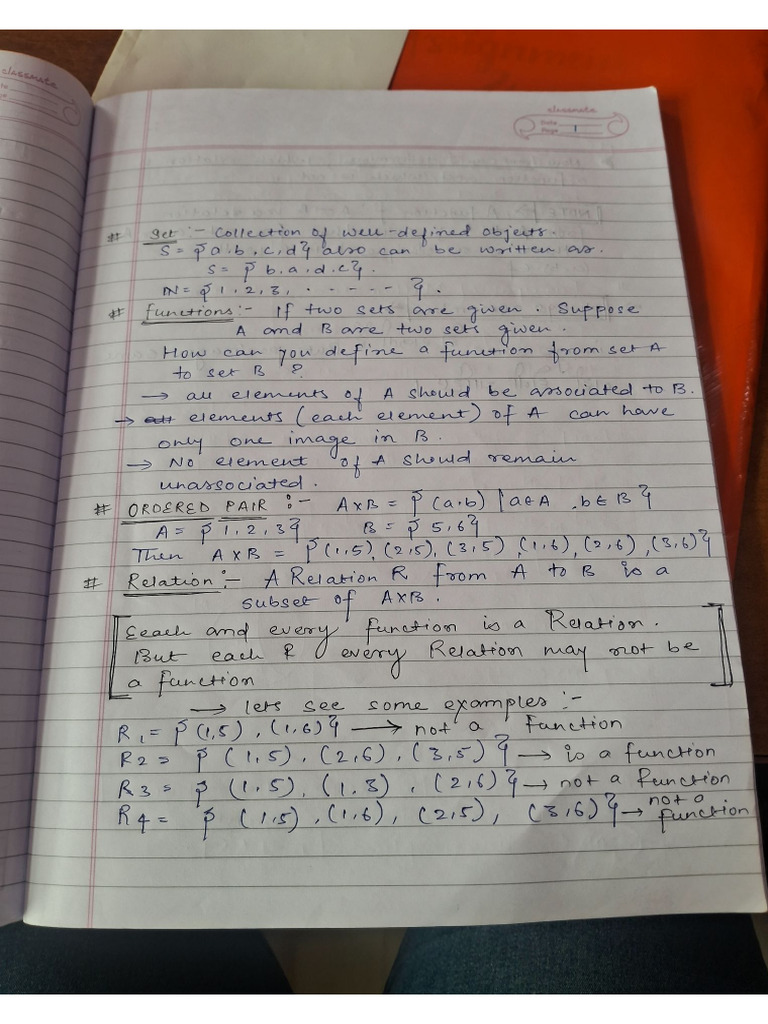 classmate
classmate
Date
Page 1
# Set :- Collection of well-defined objects.
S = {a.b,c,d} also can be written as.
S = { b,a,d.c}.
N = {1,2,3, . - - - - - }.
# Functions:- If two sets are given. Suppose
A and B are two sets given.
How can you define a function from set A
to set B ?
→ all elements of A should be associated to B.
→ all elements (each element) of A can have
only one image in B.
→ No element of A should remain
unassociated.
# ORDERED PAIR :- A×B = { (a.b) | a∈A , b∈B }
A = {1,2,3} B = {5,6}
Then A×B = {(1,5), (2,5), (3,5), (1,6), (2,6), (3,6)}
# Relation:- A Relation R from A to B is a
subset of A×B.
Eeach and every function is a Relation.
But each & every Relation may not be
a function
→ lets see some examples:-
R1 = {(1,5), (1,6)} → not a function
R2 = { (1,5), (2,6), (3,5) } → is a function
R3 = { (1,5), (1,3), (2,6)} → not a function
R4 = { (1,5), (1,6), (2,5), (3,6)} → not a
function